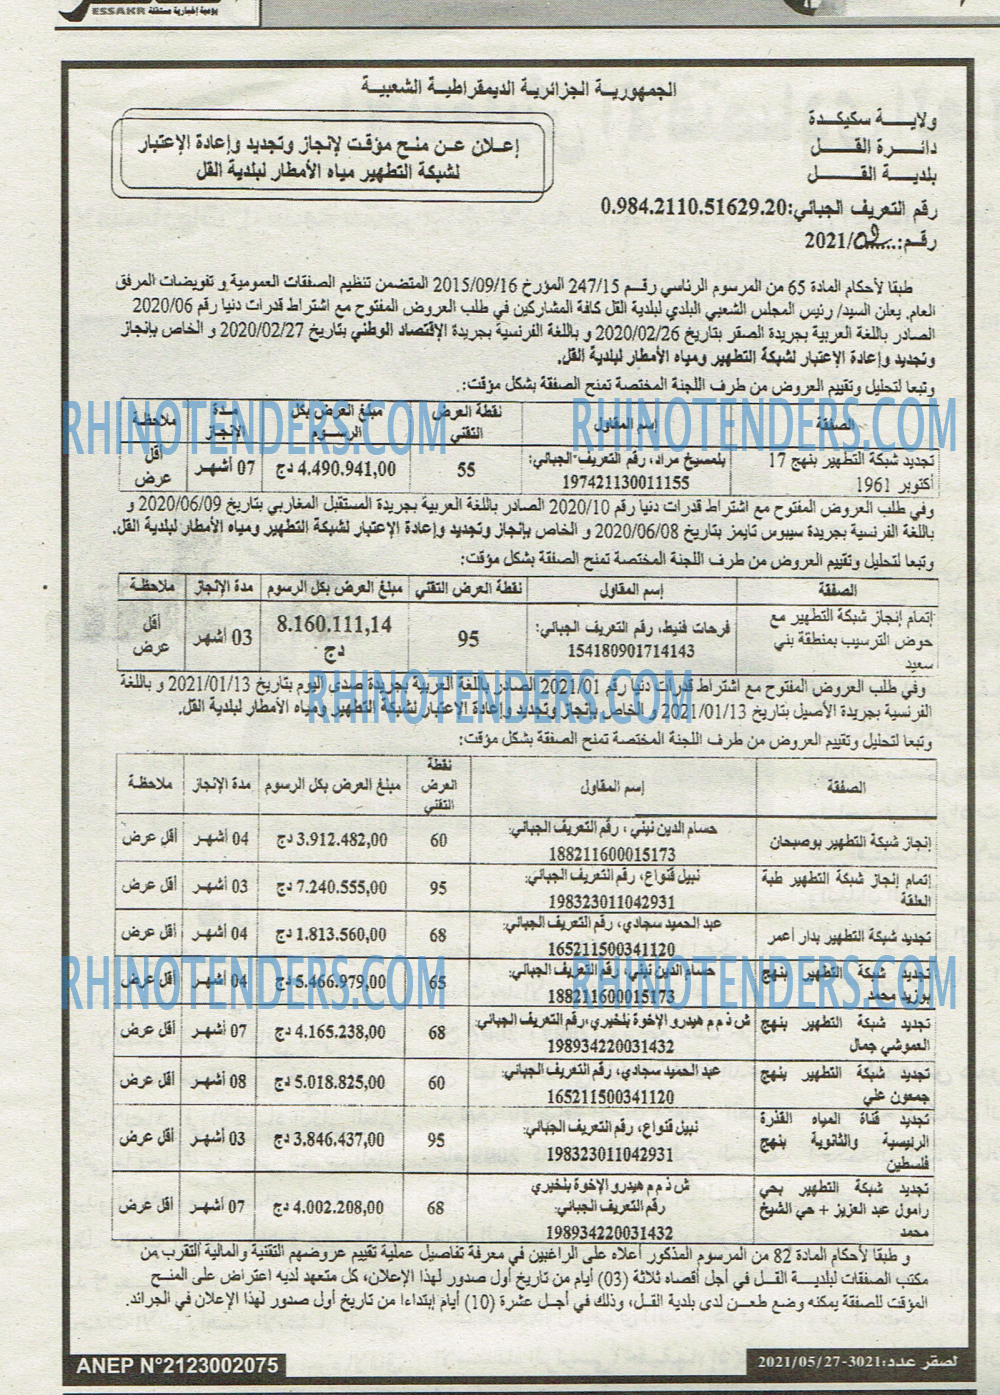 ESSAKR يومية إخبارية مستقلة
الجمهوريـة الجزائريـة الديمقراطيـة الشعبيـة
ولايـــة سكيكـدة
دائـرة القـــل
بلديــة القــــل
إعـلان عـن منـح مـؤقـت لإنجـاز وتجديد وإعادة الإعتبار
لشبكة التطهير مياه الأمطار لبلدية القل
رقم التعريف الجبائي:0.984.2110.51629.20
رقـم:....../2021
طبقا لأحكام المادة 65 من المرسوم الرئاسي رقـم 247/15 المؤرخ 2015/09/16 المتضمن تنظيم الصفقات العمومية و تفويضات المرفق
العام. يعلن السيد/ رئيس المجلس الشعبي البلدي لبلدية القل كافة المشاركين في طلب العروض المفتوح مع اشتراط قدرات دنيا رقم 2020/06
الصادر باللغة العربية بجريدة الصقر بتاريخ 2020/02/26 و باللغة الفرنسية بجريدة الإقتصاد الوطني بتاريخ 2020/02/27 و الخاص بإنجاز
وتجديد وإعادة الإعتبار لشبكة التطهير ومياه الأمطار لبلدية القل.
وتبعا لتحليل وتقييم العروض من طرف اللجنة المختصة تمنح الصفقة بشكل مؤقت:
الصفقة | إسم المقاول | نقطة العرض التقني | مبلغ العرض بكل الرسوم | مدة الانجاز | ملاحظة
تجديد شبكة التطهير بنهج 17 أكتوبر 1961 | بلمسيخ مراد، رقم التعريف الجبائي: 197421130011155 | 55 | 4.490.941,00 دج | 07 أشهر | أقل عرض
وفي طلب العروض المفتوح مع اشتراط قدرات دنيا رقم 2020/10 الصادر باللغة العربية بجريدة المستقبل المغاربي بتاريخ 2020/06/09 و
باللغة الفرنسية بجريدة سيبوس تايمز بتاريخ 2020/06/08 و الخاص بإنجاز وتجديد وإعادة الإعتبار لشبكة التطهير ومياه الأمطار لبلدية القل.
وتبعا لتحليل وتقييم العروض من طرف اللجنة المختصة تمنح الصفقة بشكل مؤقت:
الصفقة | إسم المقاول | نقطة العرض التقني | مبلغ العرض بكل الرسوم | مدة الإنجاز | ملاحظة
إتمام إنجاز شبكة التطهير مع حوض الترسيب بمنطقة بني سعيد | فرحات قنيط، رقم التعريف الجبائي: 154180901714143 | 95 | 8.160.111,14 دج | 03 أشهر | أقل عرض
وفي طلب العروض المفتوح مع اشتراط قدرات دنيا رقم 2021/01 الصادر باللغة العربية بجريدة صدى اليوم بتاريخ 2021/01/13 و باللغة
الفرنسية بجريدة الأصيل بتاريخ 2021/01/13 و الخاص بإنجاز وتجديد وإعادة الإعتبار لشبكة التطهير ومياه الأمطار لبلدية القل.
وتبعا لتحليل وتقييم العروض من طرف اللجنة المختصة تمنح الصفقة بشكل مؤقت:
الصفقة | إسم المقاول | نقطة العرض التقني | مبلغ العرض بكل الرسوم | مدة الإنجاز | ملاحظة
إنجاز شبكة التطهير بوصبحان | حسام الدين نيني ، رقم التعريف الجبائي: 188211600015173 | 60 | 3.912.482,00 دج | 04 أشهر | أقل عرض
إتمام إنجاز شبكة التطهير طبة العلقة | نبيل قنواع، رقم التعريف الجبائي: 198323011042931 | 95 | 7.240.555,00 دج | 03 أشهر | أقل عرض
تجديد شبكة التطهير بدار أعمر | عبد الحميد سجادي، رقم التعريف الجبائي: 165211500341120 | 68 | 1.813.560,00 دج | 04 أشهر | أقل عرض
تجديد شبكة التطهير بنهج بوزيد محمد | حسام الدين نيني، رقم التعريف الجبائي: 188211600015173 | 65 | 5.466.979,00 دج | 04 أشهر | أقل عرض
تجديد شبكة التطهير بنهج العموشي جمال | ش ذ م م هيدرو الإخوة بلخيري، رقم التعريف الجبائي: 198934220031432 | 68 | 4.165.238,00 دج | 07 أشهر | أقل عرض
تجديد شبكة التطهير بنهج جمعون علي | عبد الحميد سجادي، رقم التعريف الجبائي: 165211500341120 | 60 | 5.018.825,00 دج | 08 أشهر | أقل عرض
تجديد قناة المياه القذرة الرئيسية والثانوية بنهج فلسطين | نبيل قنواع، رقم التعريف الجبائي: 198323011042931 | 95 | 3.846.437,00 دج | 03 أشهر | أقل عرض
تجديد شبكة التطهير بحي رامول عبد العزيز + حي الشيخ محمد | ش ذ م م هيدرو الإخوة بلخيري رقم التعريف الجبائي: 198934220031432 | 68 | 4.002.208,00 دج | 07 أشهر | أقل عرض
و طبقا لأحكام المادة 82 من المرسوم المذكور أعلاه على الراغبين في معرفة تفاصيل عملية تقييم عروضهم التقنية والمالية التقرب من
مكتب الصفقات لبلديـة القـل في أجل أقصاه ثلاثة (03) أيام من تاريخ أول صدور لهذا الإعلان، كل متعهد لديه اعتراض على المنح
المؤقت للصفقة يمكنه وضع طعـن لدى بلدية القل، وذلك في أجـل عشرة (10) أيام ابتداءا من تاريخ أول صدور لهذا الإعلان في الجرائد.
لصقر عدد:3021-2021/05/27
ANEP N°2123002075
RHINOTENDERS.COM
RHINOTENDERS.COM
RHINOTENDERS.COM
RHINOTENDERS.COM
RHINOTENDERS.COM